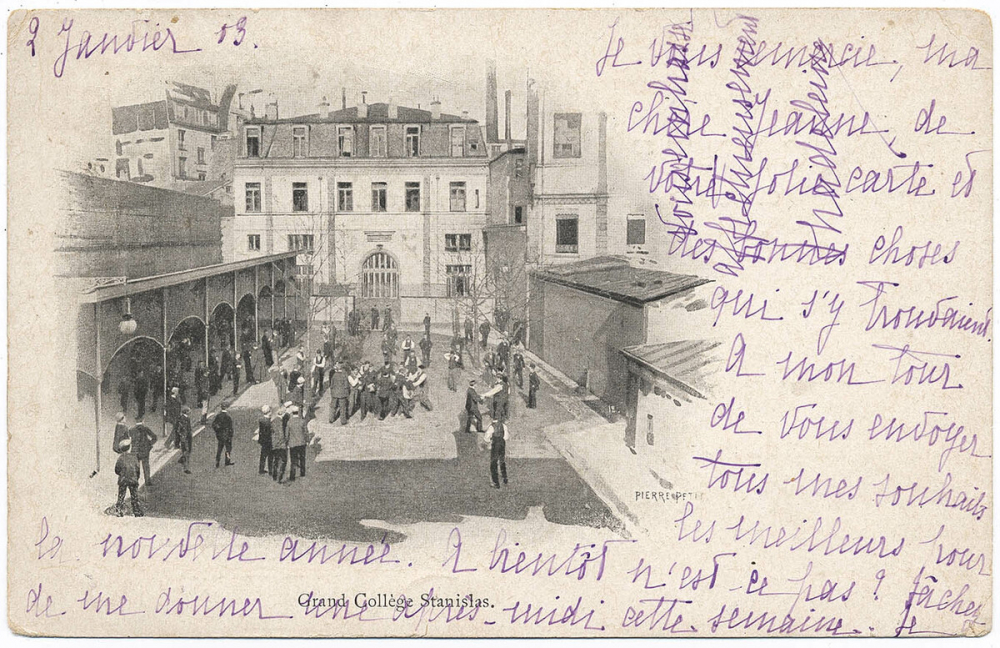 2 Janvier 03.
Je vous remercie, ma
chère Jeanne, de
votre jolie carte et
des bonnes choses
qui s'y trouvaient.
A mon tour
de vous envoyer
tous mes souhaits
les meilleurs pour
la nouvelle année. A bientôt n'est ce pas? Tâchez
de me donner une après-midi cette semaine. Je
vous embrasse
affectueusement
Madeleine
PIERRE PETIT
Grand Collège Stanislas.